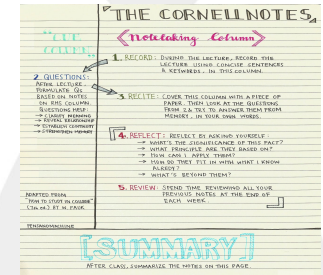 THE CORNELLNOTES
"CUE
COLUMN"
Notetaking Column
1. RECORD: DURING THE LECTURE, RECORD THE
LECTURE USING CONCISE SENTENCES
& KEYWORDS, IN THIS COLUMN.
2. QUESTIONS:
AFTER LECTURE,
FORMULATE Qs
BASED ON NOTES
ON RHS COLUMN.
QUESTIONS HELP:
→ CLARIFY MEANING
→ REVEAL RELATIONSHIP
→ ESTABLISH CONTINUITY
→ STRENGTHEN MEMORY
3. RECITE: COVER THIS COLUMN WITH A PIECE OF
PAPER. THEN LOOK AT THE QUESTIONS
FROM 2 & TRY TO ANSWER THEM FROM
MEMORY, IN YOUR OWN WORDS.
4. REFLECT: REFLECT BY ASKING YOURSELF:
→ WHAT'S THE SIGNIFICANCE OF THIS FACT?
→ WHAT PRINCIPLE ARE THEY BASED ON?
→ HOW CAN I APPLY THEM?
→ HOW DO THEY FIT IN WITH WHAT I KNOW
ALREADY?
→ WHAT'S BEYOND THEM?
5. REVIEW: SPEND TIME REVIEWING ALL YOUR
PREVIOUS NOTES AT THE END OF
EACH WEEK.
ADAPTED FROM
"HOW TO STUDY IN COLLEGE"
(7th ED.) BY W. PAUK
[SUMMARY]
AFTER CLASS, SUMMARIZE THE NOTES ON THIS PAGE.